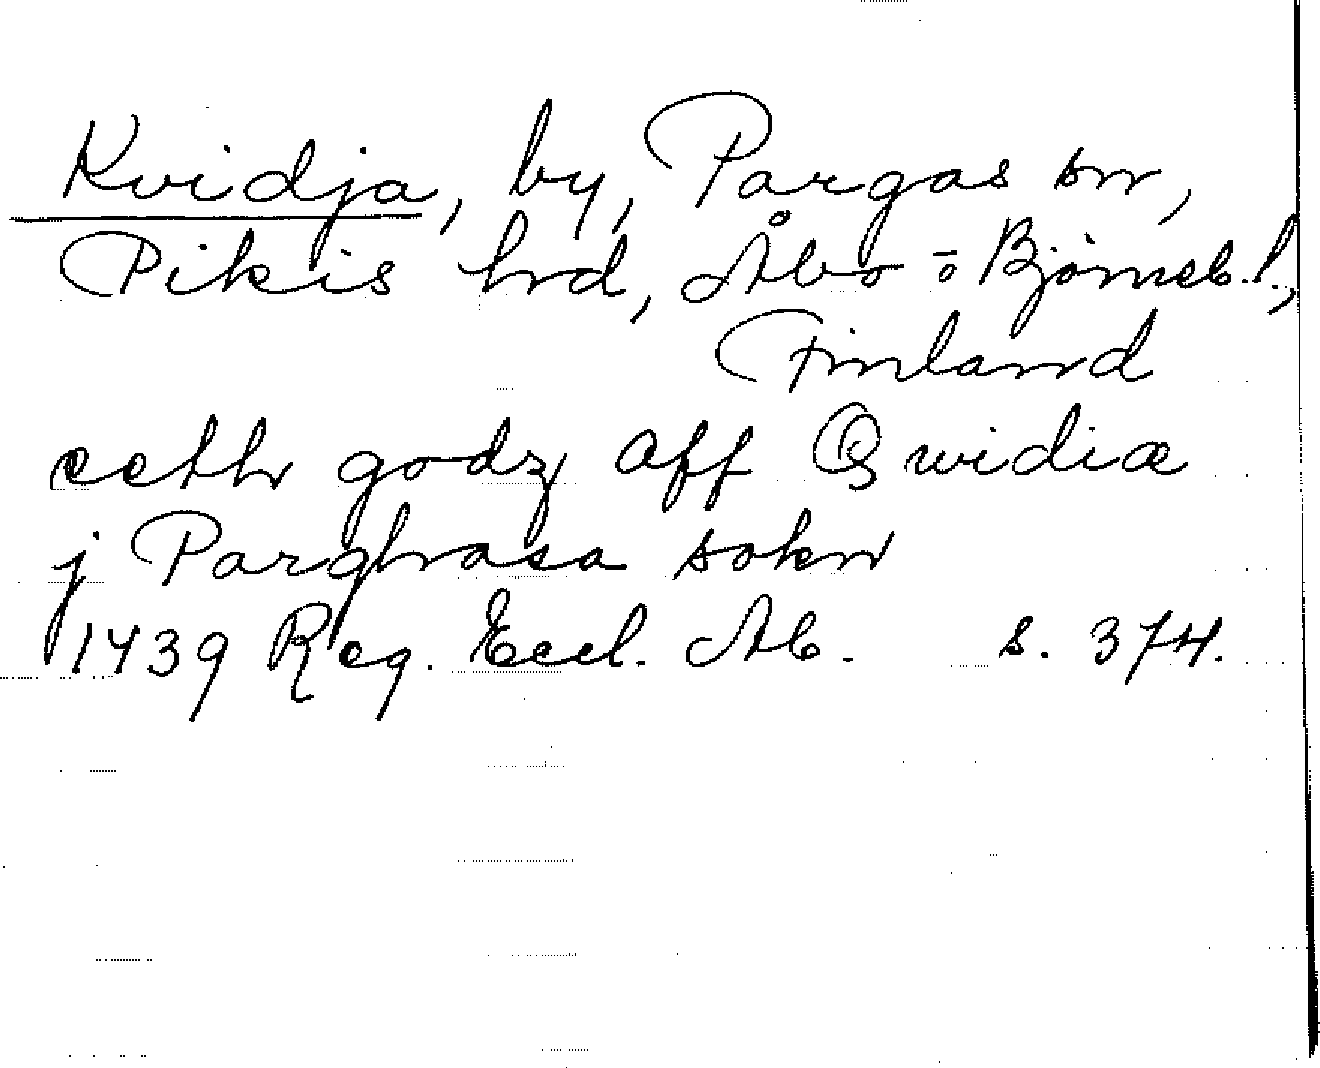 Kvidja, by, Pargas sn,
Pikis hrd, Åbo o Björneb. l.,
Finland
eeth godz aff Qwidiæ
j Parghasa sokn
1439 Reg. Eccl. Ab. s. 374.